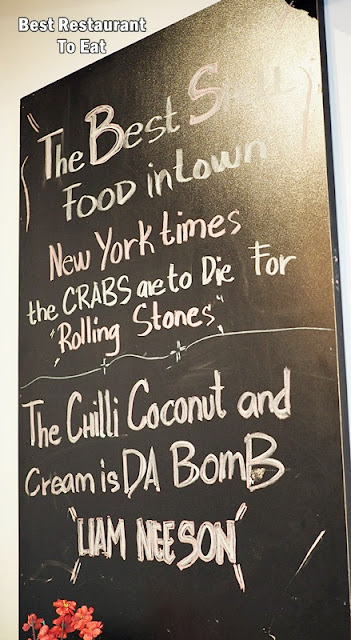 Best Restaurant
To Eat
"The Best
FOOD in town
New York times
the CRABS are to Die For
"Rolling Stones"
The Chilli Coconut and
Cream is DA BomB
"LIAM NEESON"